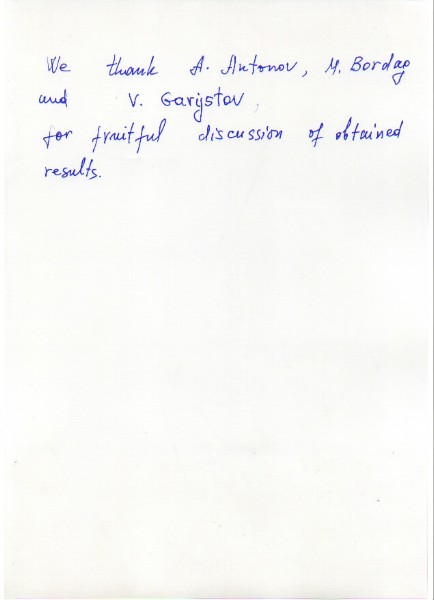 We thank A. Antonov, M. Bordag
and V. Garijstov,
for fruitful discussion of obtained
results.